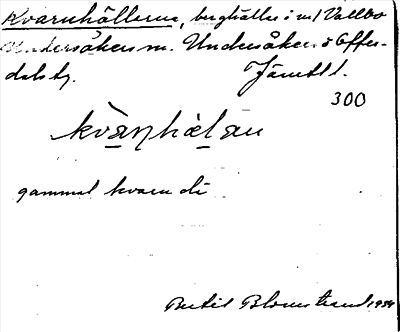 Kvarnhällerna, berghällar i ml Vallbo
Undersåkers sn. Undersåkers o Offer-
dals tg. Jämtl l.
300
kvàɳhæḷan
gammal kvarn di
Bertil Blomstrand 1934